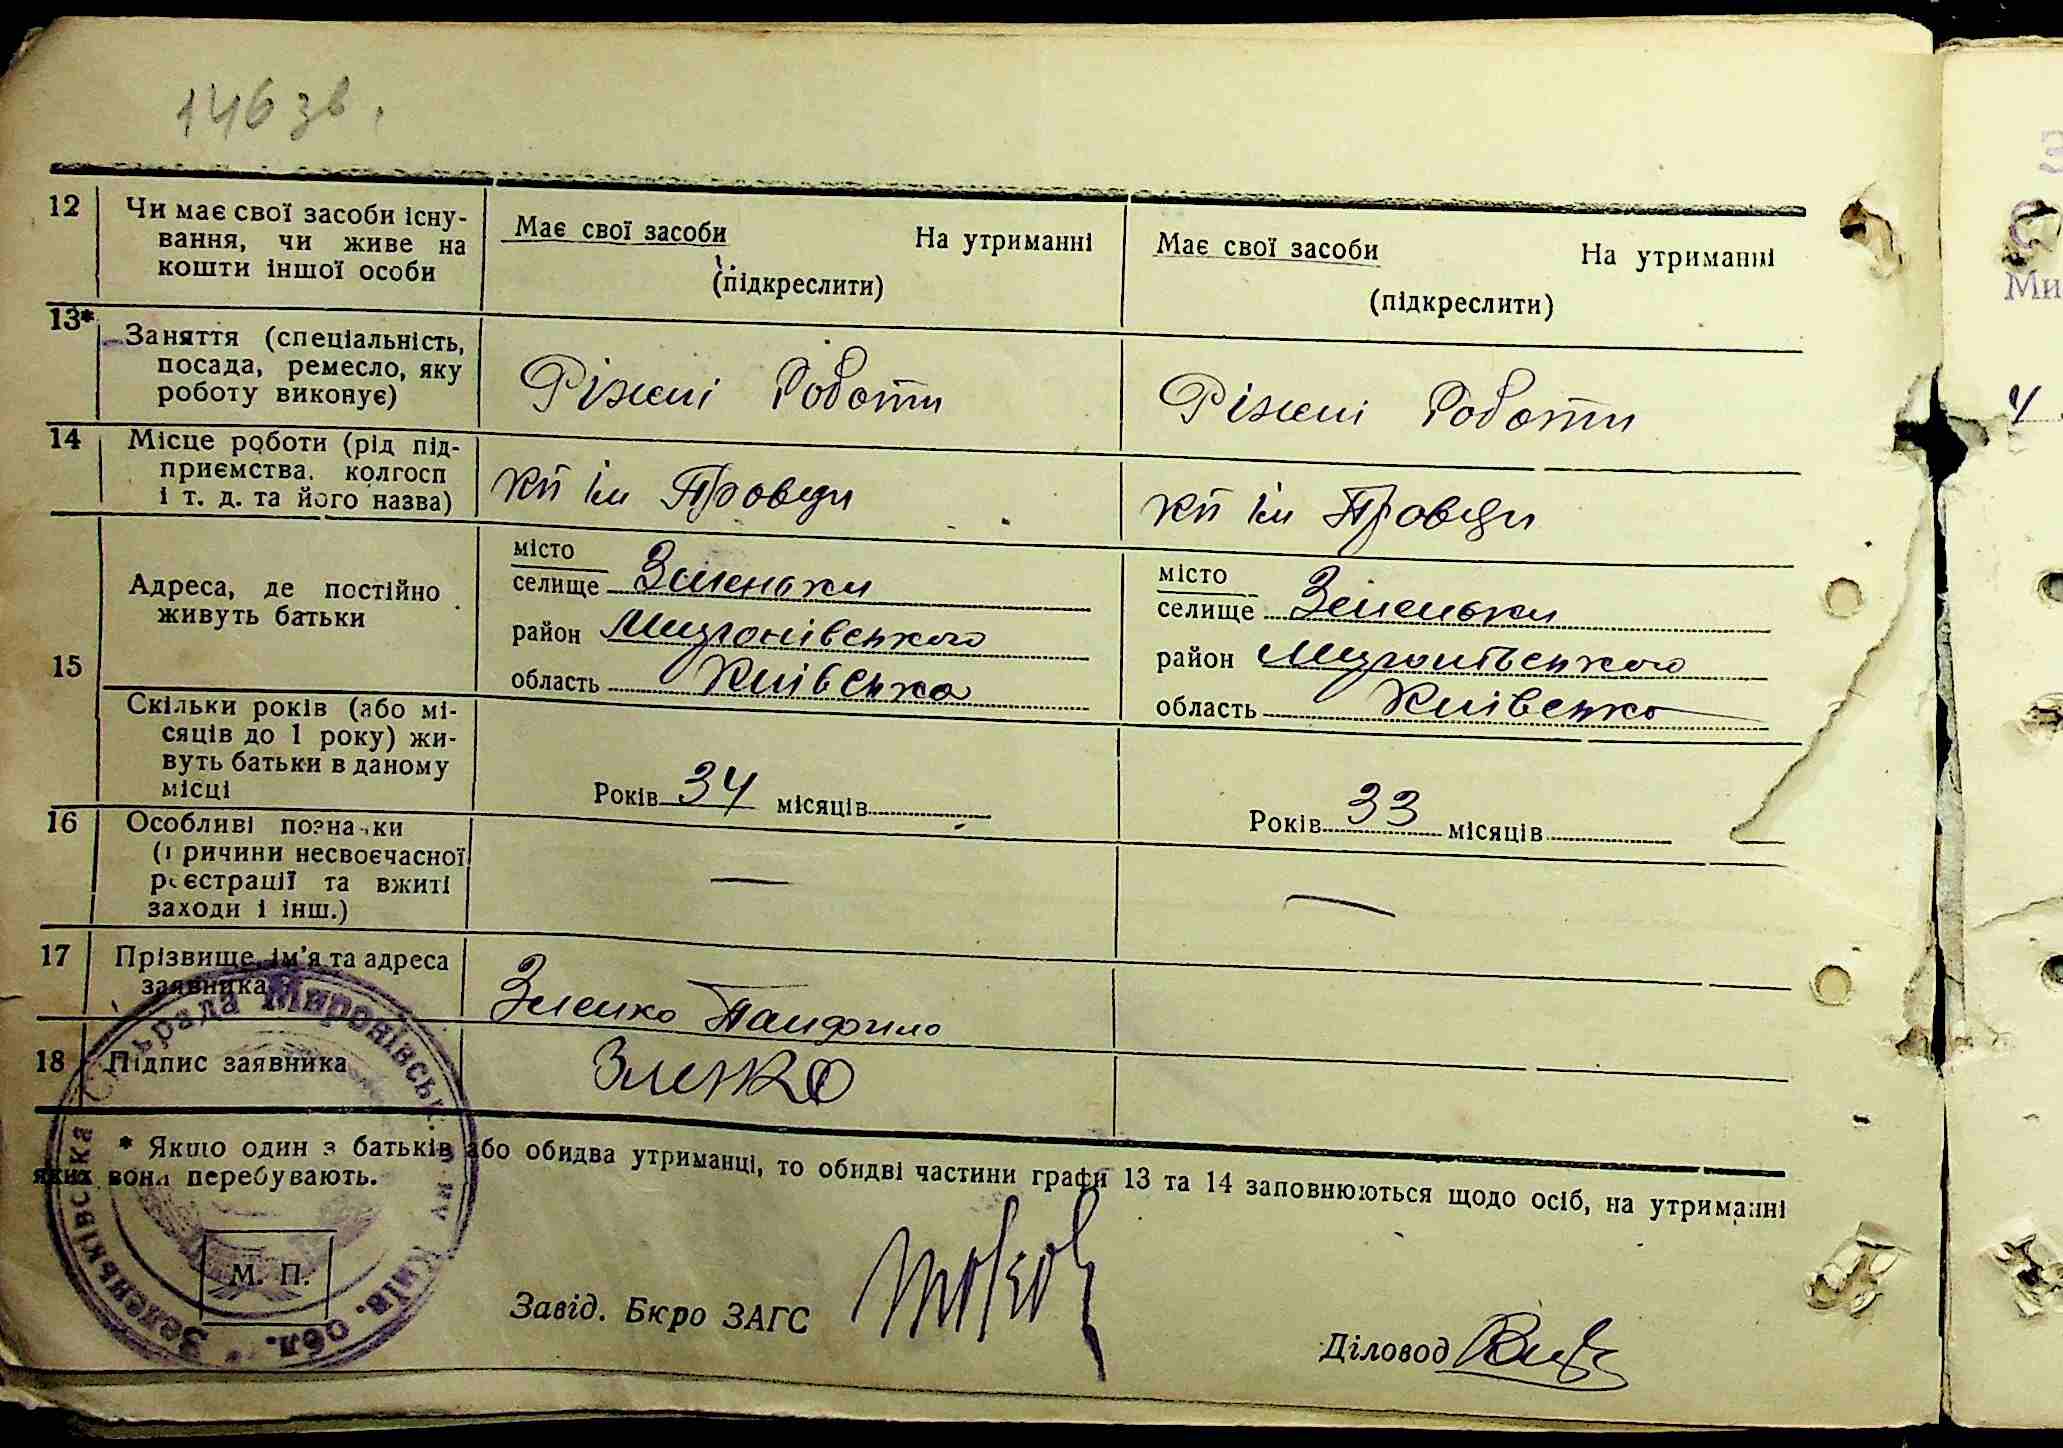 146 зв.
12 Чи має свої засоби існу-
вання, чи живе на
кошти іншої особи
Має свої засоби На утриманні
(підкреслити)
Має свої засоби На утриманні
(підкреслити)
13* Заняття (спеціальність,
посада, ремесло, яку
роботу виконує)
Ріжні Роботи
Ріжні Роботи
14 Місце роботи (рід під-
приємства, колгосп
і т. д. та його назва)
кп ім Правди
кп ім Правди
15
Адреса, де постійно
живуть батьки
місто
селище Зеленьки
район Миронівського
область Київська
місто
селище Зеленьки
район Миронівського
область Київсько
Скільки років (або мі-
сяців до 1 року) жи-
вуть батьки в даному
місці
Років 34 місяців
Років 33 місяців
16 Особливі познаки
(причини несвоєчасної
реєстрації та вжиті
заходи і інш.)
—
—
17 Прізвище, ім'я та адреса
заявника
Зленко Панфило
18 Підпис заявника
Зленко
* Якщо один з батьків або обидва утриманці, то обидві частини графи 13 та 14 заповнюються щодо осіб, на утриманні
яких вони перебувають.
Зеленьківська Сільрада Миронівськ. р-ну Київ. обл.
М. П.
Завід. Бюро ЗАГС
Діловод
Ми